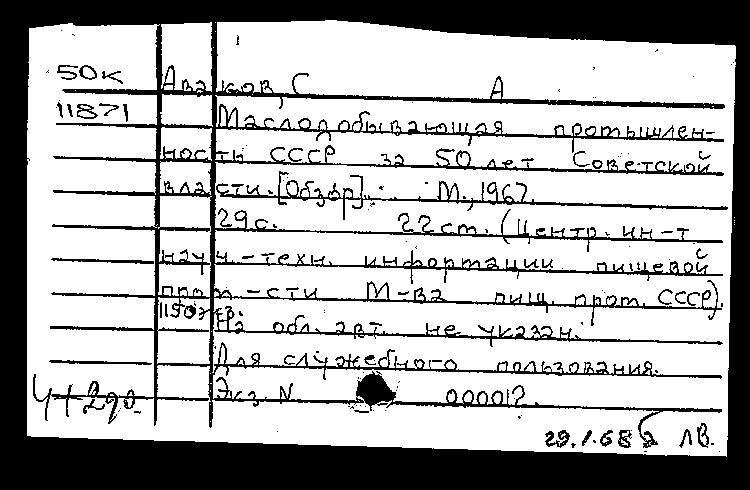 50к Аваков, С А
11871 Маслодобывающая промышлен-
ность СССР за 50 лет Советской
власти. [Обзор]. М., 1967.
29 с. 22 см. (Центр. ин-т
науч.-техн. информации пищевой
пром-сти М-ва пищ. пром. СССР).
1150 экз. На обл. авт. не указан.
Для служебного пользования.
Экз. N 000012.
29.1.68 ЛВ.